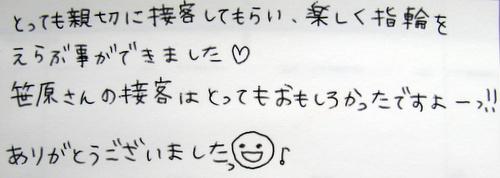 とっても親切に接客してもらい、楽しく指輪を
えらぶ事ができました♡
笹原さんの接客はとってもおもしろかったですよーっ!!
ありがとうございましたっ☺♪